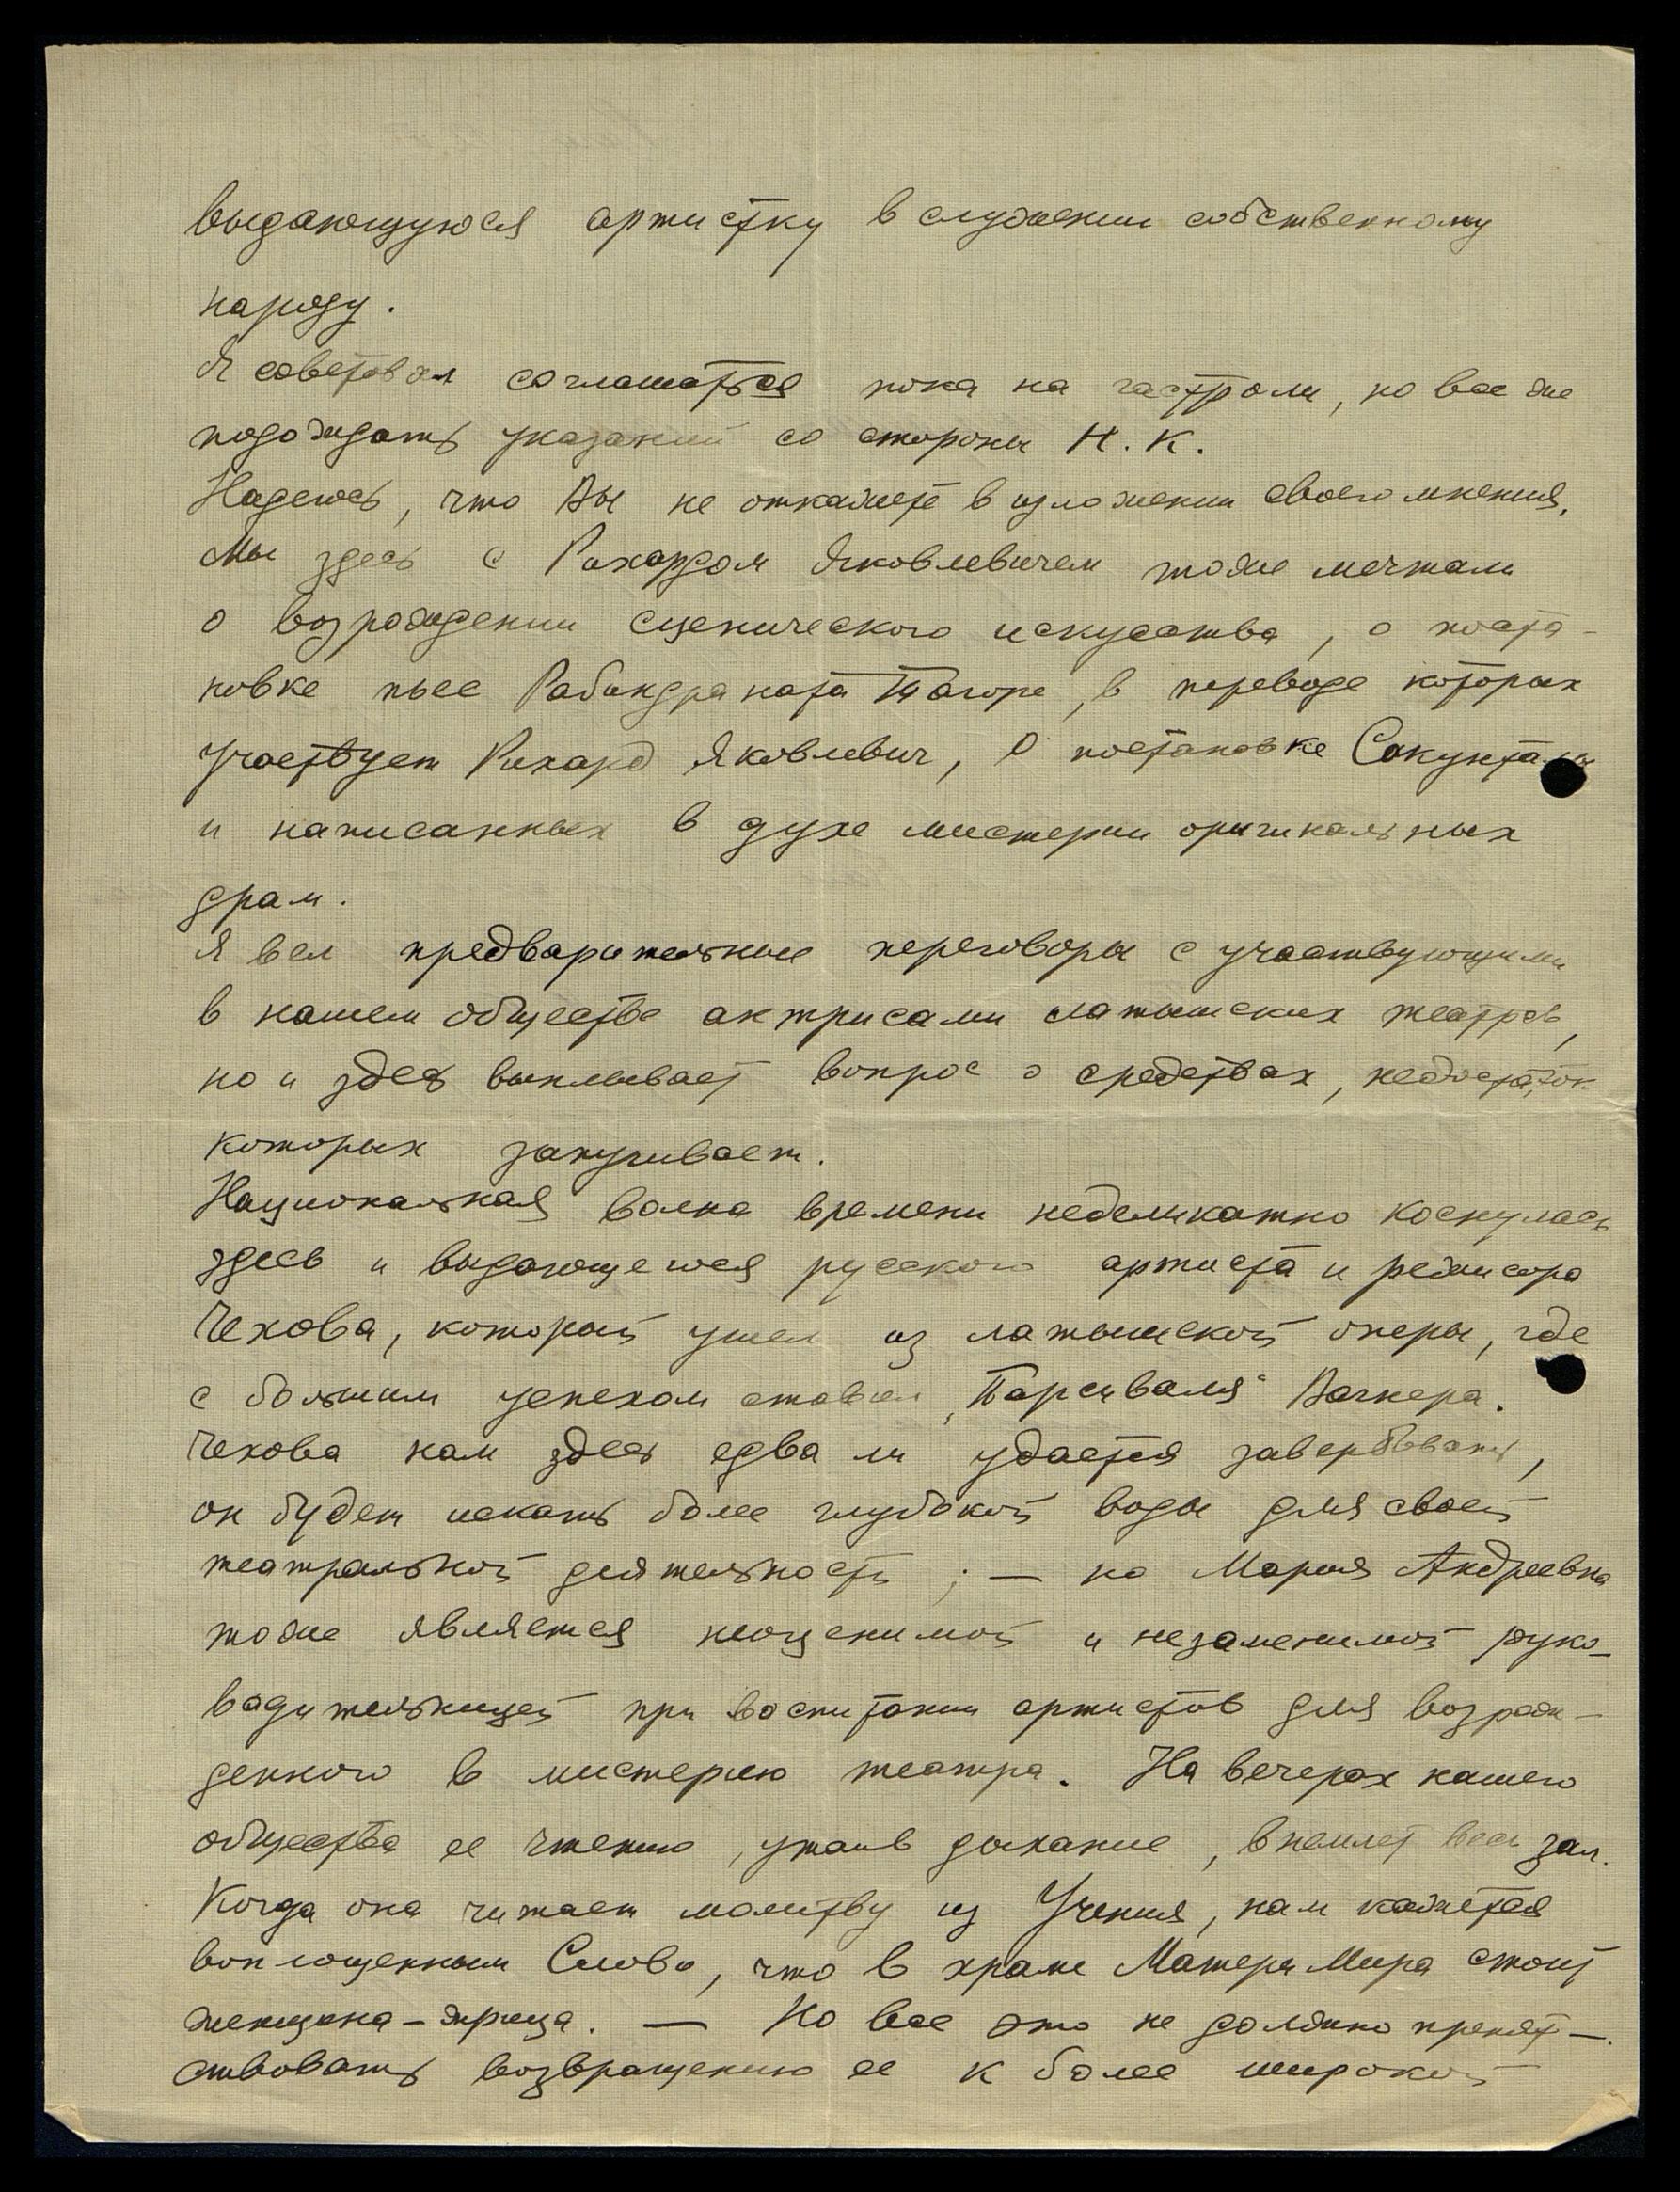 выдающуюся артистку в служении собственному
народу.
Я советовал соглашаться пока на гастроли, но все же
подождать указаний со стороны Н. К.
Надеюсь, что Вы не откажете в изложении своего мнения.
Мы здесь с Рихардом Яковлевичем тоже мечтали
о возрождении сценического искусства, о поста-
новке пьес Рабиндраната Тагоре, в переводе которых
участвует Рихард Яковлевич, о постановке Сакунталы
и написанных в духе мистерии оригинальных
драм.
Я вел предварительные переговоры с участвующими
в нашем обществе актрисами латышских театров,
но и здесь выплывает вопрос о средствах, недостаток
которых запугивает.
Национальная волна времени неделикатно коснулась
здесь и выдающегося русского артиста и режисора
Чехова, который ушел из латышской оперы, где
с большим успехом ставил „Парсиваля" Вагнера.
Чехова нам здесь едва ли удастся завербовать,
он будет искать более глубокой воды для своей
театральной деятельности; — но Мария Андреевна
тоже является неоценимой и незаменимой руко-
водительницей при воспитании артистов для возрож-
денного в мистерию театра. На вечерах нашего
общества ее чтению, утаив дыхание, внемлет весь зал.
Когда она читает молитву из Учения, нам кажется
воплощенным Слово, что в храме Матери Мира стоит
женщина-жрица. — Но все это не должно препят-
ствовать возвращению ее к более широкой